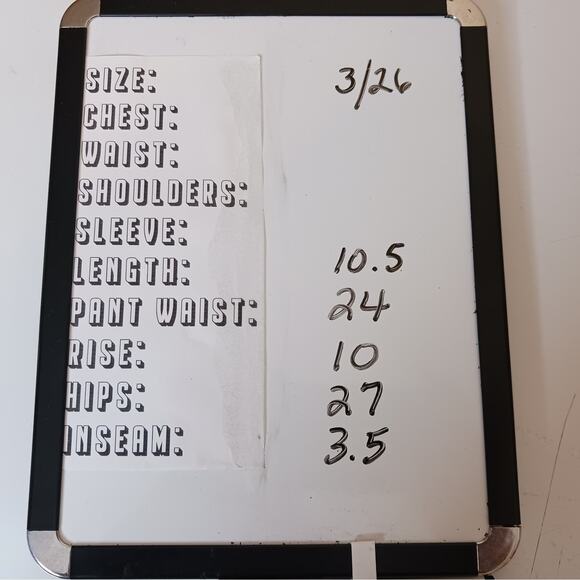 SIZE: 3/26
CHEST:
WAIST:
SHOULDERS:
SLEEVE:
LENGTH: 10.5
PANT WAIST: 24
RISE: 10
HIPS: 27
INSEAM: 3.5